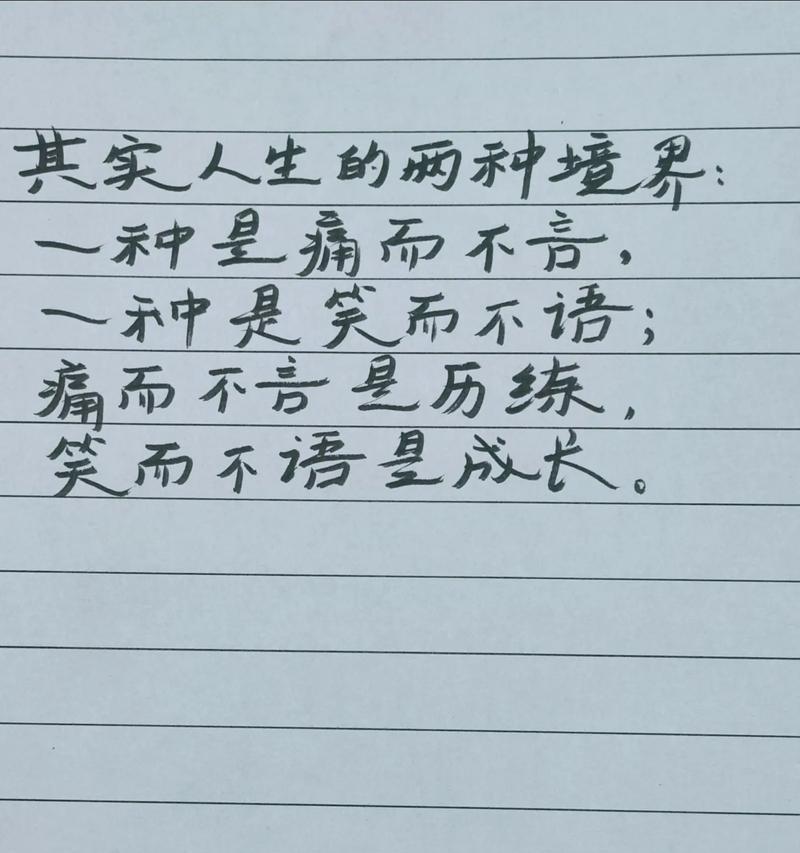 其实人生的两种境界:
一种是痛而不言,
一种是笑而不语;
痛而不言是历练,
笑而不语是成长。